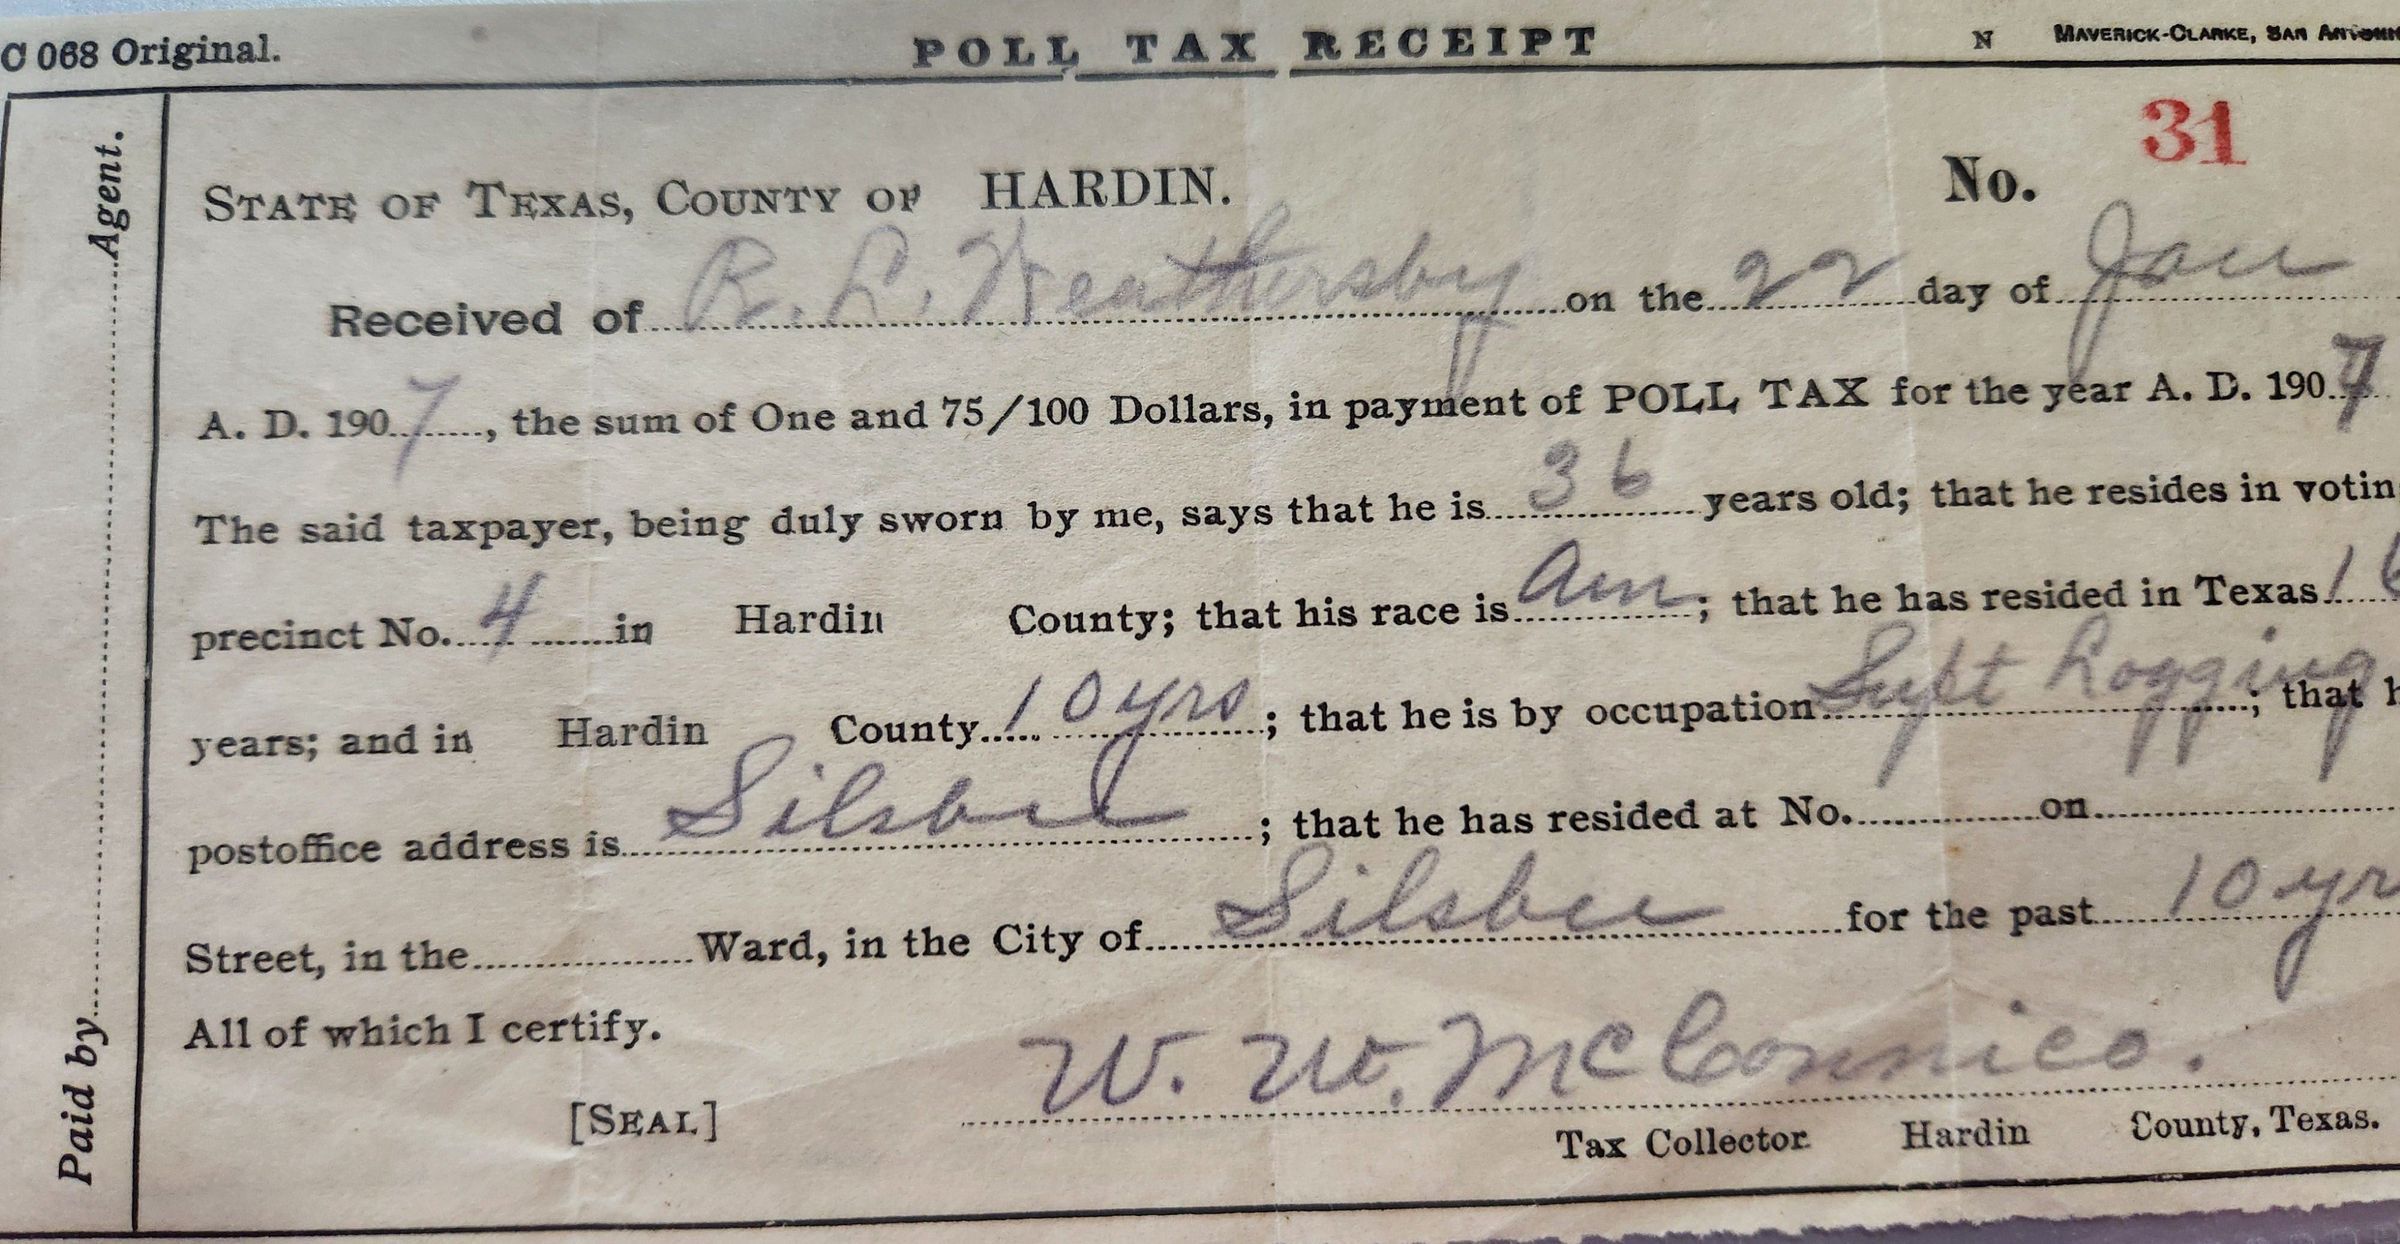 C 068 Original. POLL TAX RECEIPT N MAVERICK-CLARKE, SAN
Paid by Agent.
STATE OF TEXAS, COUNTY OF HARDIN. No. 31
Received of R. L. Weathersby on the 22 day of Jan
A. D. 190 7, the sum of One and 75/100 Dollars, in payment of POLL TAX for the year A. D. 190 7
The said taxpayer, being duly sworn by me, says that he is 36 years old; that he resides in votin
precinct No. 4 in Hardin County; that his race is Am; that he has resided in Texas 16
years; and in Hardin County 10 yrs; that he is by occupation Supt Logging; that h
postoffice address is Silsbee; that he has resided at No. on
Street, in the Ward, in the City of Silsbee for the past 10 yr
All of which I certify.
W. W. McConnico.
[SEAL] Tax Collector Hardin County, Texas.